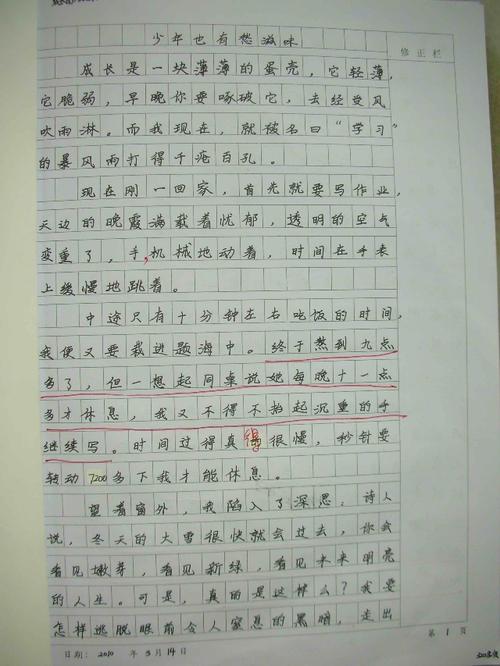 少年也有愁滋味
修正栏
成长是一块薄薄的蛋壳，它轻薄，
它脆弱，早晚你要啄破它，去经受风
吹雨淋。而我现在，就被名曰“学习”
的暴风雨打得千疮百孔。
现在刚一回家，首先就要写作业，
天边的晚霞满载着忧郁，透明的空气
变重了，手机械地动着，时间在手表
上缓慢地跳着。
中途只有十分钟左右吃饭的时间，
我便又要栽进题海中。终于熬到九点
多了，但一想起同桌说她每晚十一点
多才休息，我又不得不抬起沉重的手
继续写。时间过得真得很慢，秒针要
转动7200多下我才能休息。
望着窗外，我陷入了深思：诗人
说，冬天的大雪很快就会过去，你会
看见嫩芽，看见新绿，看见未来明亮
的人生。可是，真的是这样么？我要
怎样逃脱眼前令人窒息的黑暗，走出
第 1 页
日期：2010 年 3 月 14 日